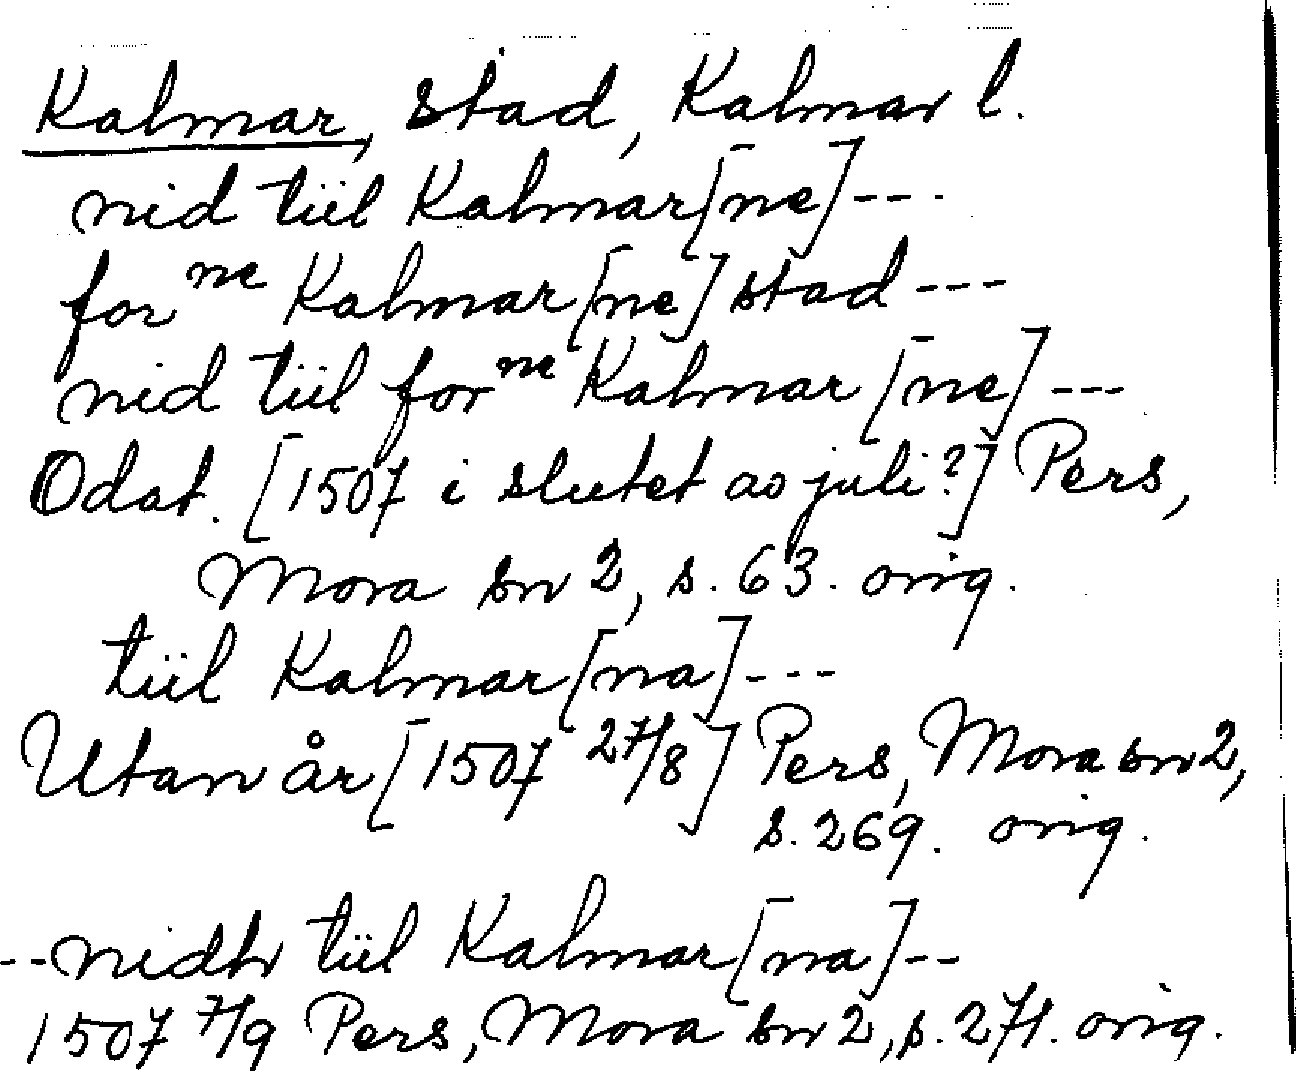 Kalmar, stad, Kalmar l.
nid tiil Kalmar[ne]---
for ne Kalmar[ne] stad---
nid tiil for ne Kalmar [ne]---
Odat. [1507 i slutet av juli?] Pers,
Mora sn 2, s. 63. orig.
tiil Kalmar[na]---
Utan år [1507 27/8] Pers, Mora sn 2,
s. 269. orig.
--nidh tiil Kalmar[na]--
1507 7/9 Pers, Mora sn 2, s. 271. orig.